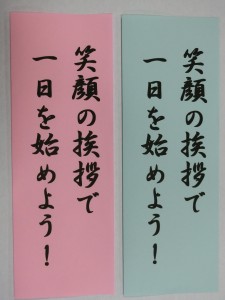 笑顔の挨拶で
一日を始めよう！
笑顔の挨拶で
一日を始めよう！